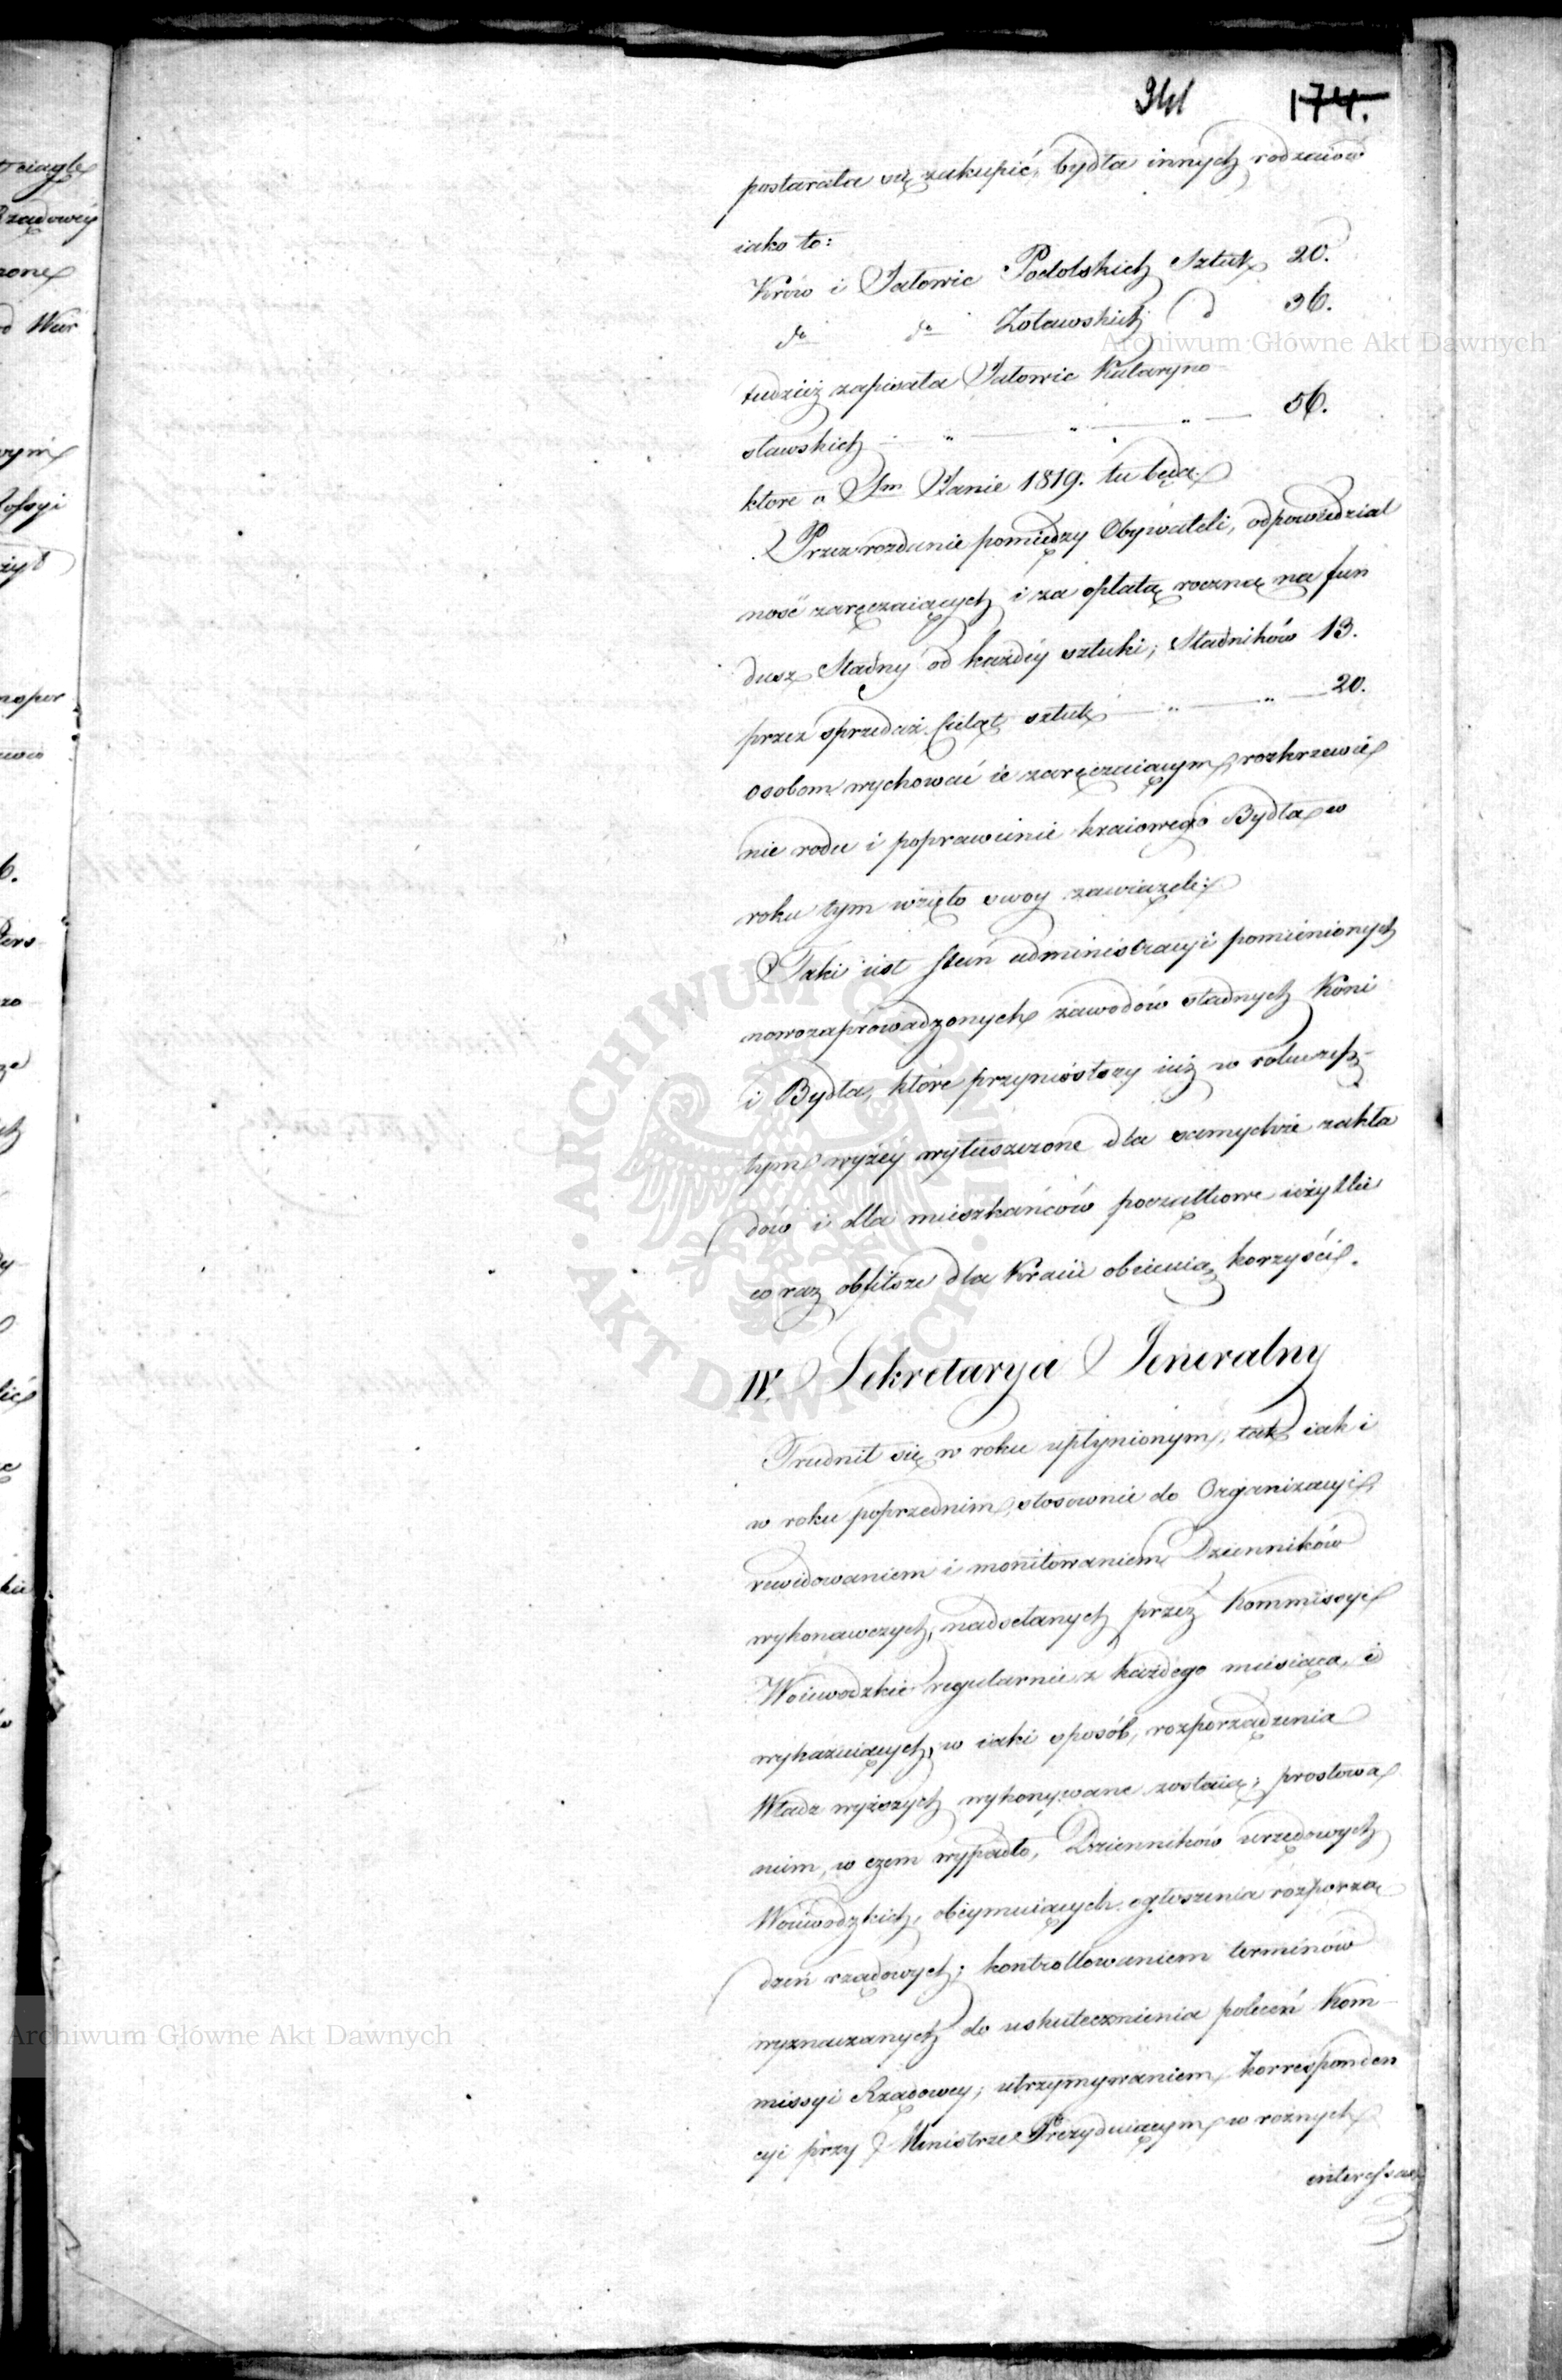 341 174.
postarała się zakupić, bydła innych rodzaiów
iako to:
Krów i Jałowic Podolskich Sztuk 20.
do do Żoławskich d 36.
tudzież zapisała Jałowic Kataryno
sławskich 56.
ktore o Sm Janie 1819. tu będą.
Przez rozdanie pomiędzy Obywateli, odpowiedzial
ność zaręczaiących i za opłatą roczną na fun
dusz Stadny od każdéy sztuki; Stadników 13.
przez sprzedaż Cieląt sztuk 20.
osobom wychować ie zaręczaiącym, rozkrzewie
nie rodu i poprawienie kraiowego Bydła w
roku tym wzięło swoy zawiązek:
Taki iest stan administracyi pomienionych
nowozaprowadzonych zawodów stadnych Koni
i Bydła, które przyniosłszy iuż w roku zesz-
łym wyżéy wyłuszczone dla samychże zakła
dów i dla mieszkańców początkowe użytki
co raz obfitsze dla Kraiu obiecuią korzyści.
IV. Sekretarya Jeneralny
Trudnił się w roku upłynionym, tak iak i
w roku poprzednim, stosownie do Organizacyi,
rewidowaniem i monitowaniem Dzienników
wykonawczych, nadsełanych przez Kommissye
Woiewodzkie regularnie z każdego miesiąca, i
wykazuiących, w iaki sposób, rozporządzenia
Władz wyższych wykonywane zostaią; prostowa
niem, w czem wypadło, Dzienników urzędowych
Woiewodzkich, obeymuiących ogłoszenia rozporzą
dzeń rządowych; kontrollowaniem terminów
wyznaczanych do uskutecznienia poleceń Kom-
missyi Rządowey; utrzymywaniem korresponden
cyi przy Ministrze Prezyduiącym w roznych
interessach
Archiwum Główne Akt Dawnych
Archiwum Główne Akt Dawnych
ARCHIWUM GŁÓWNE · AKT DAWNYCH ·